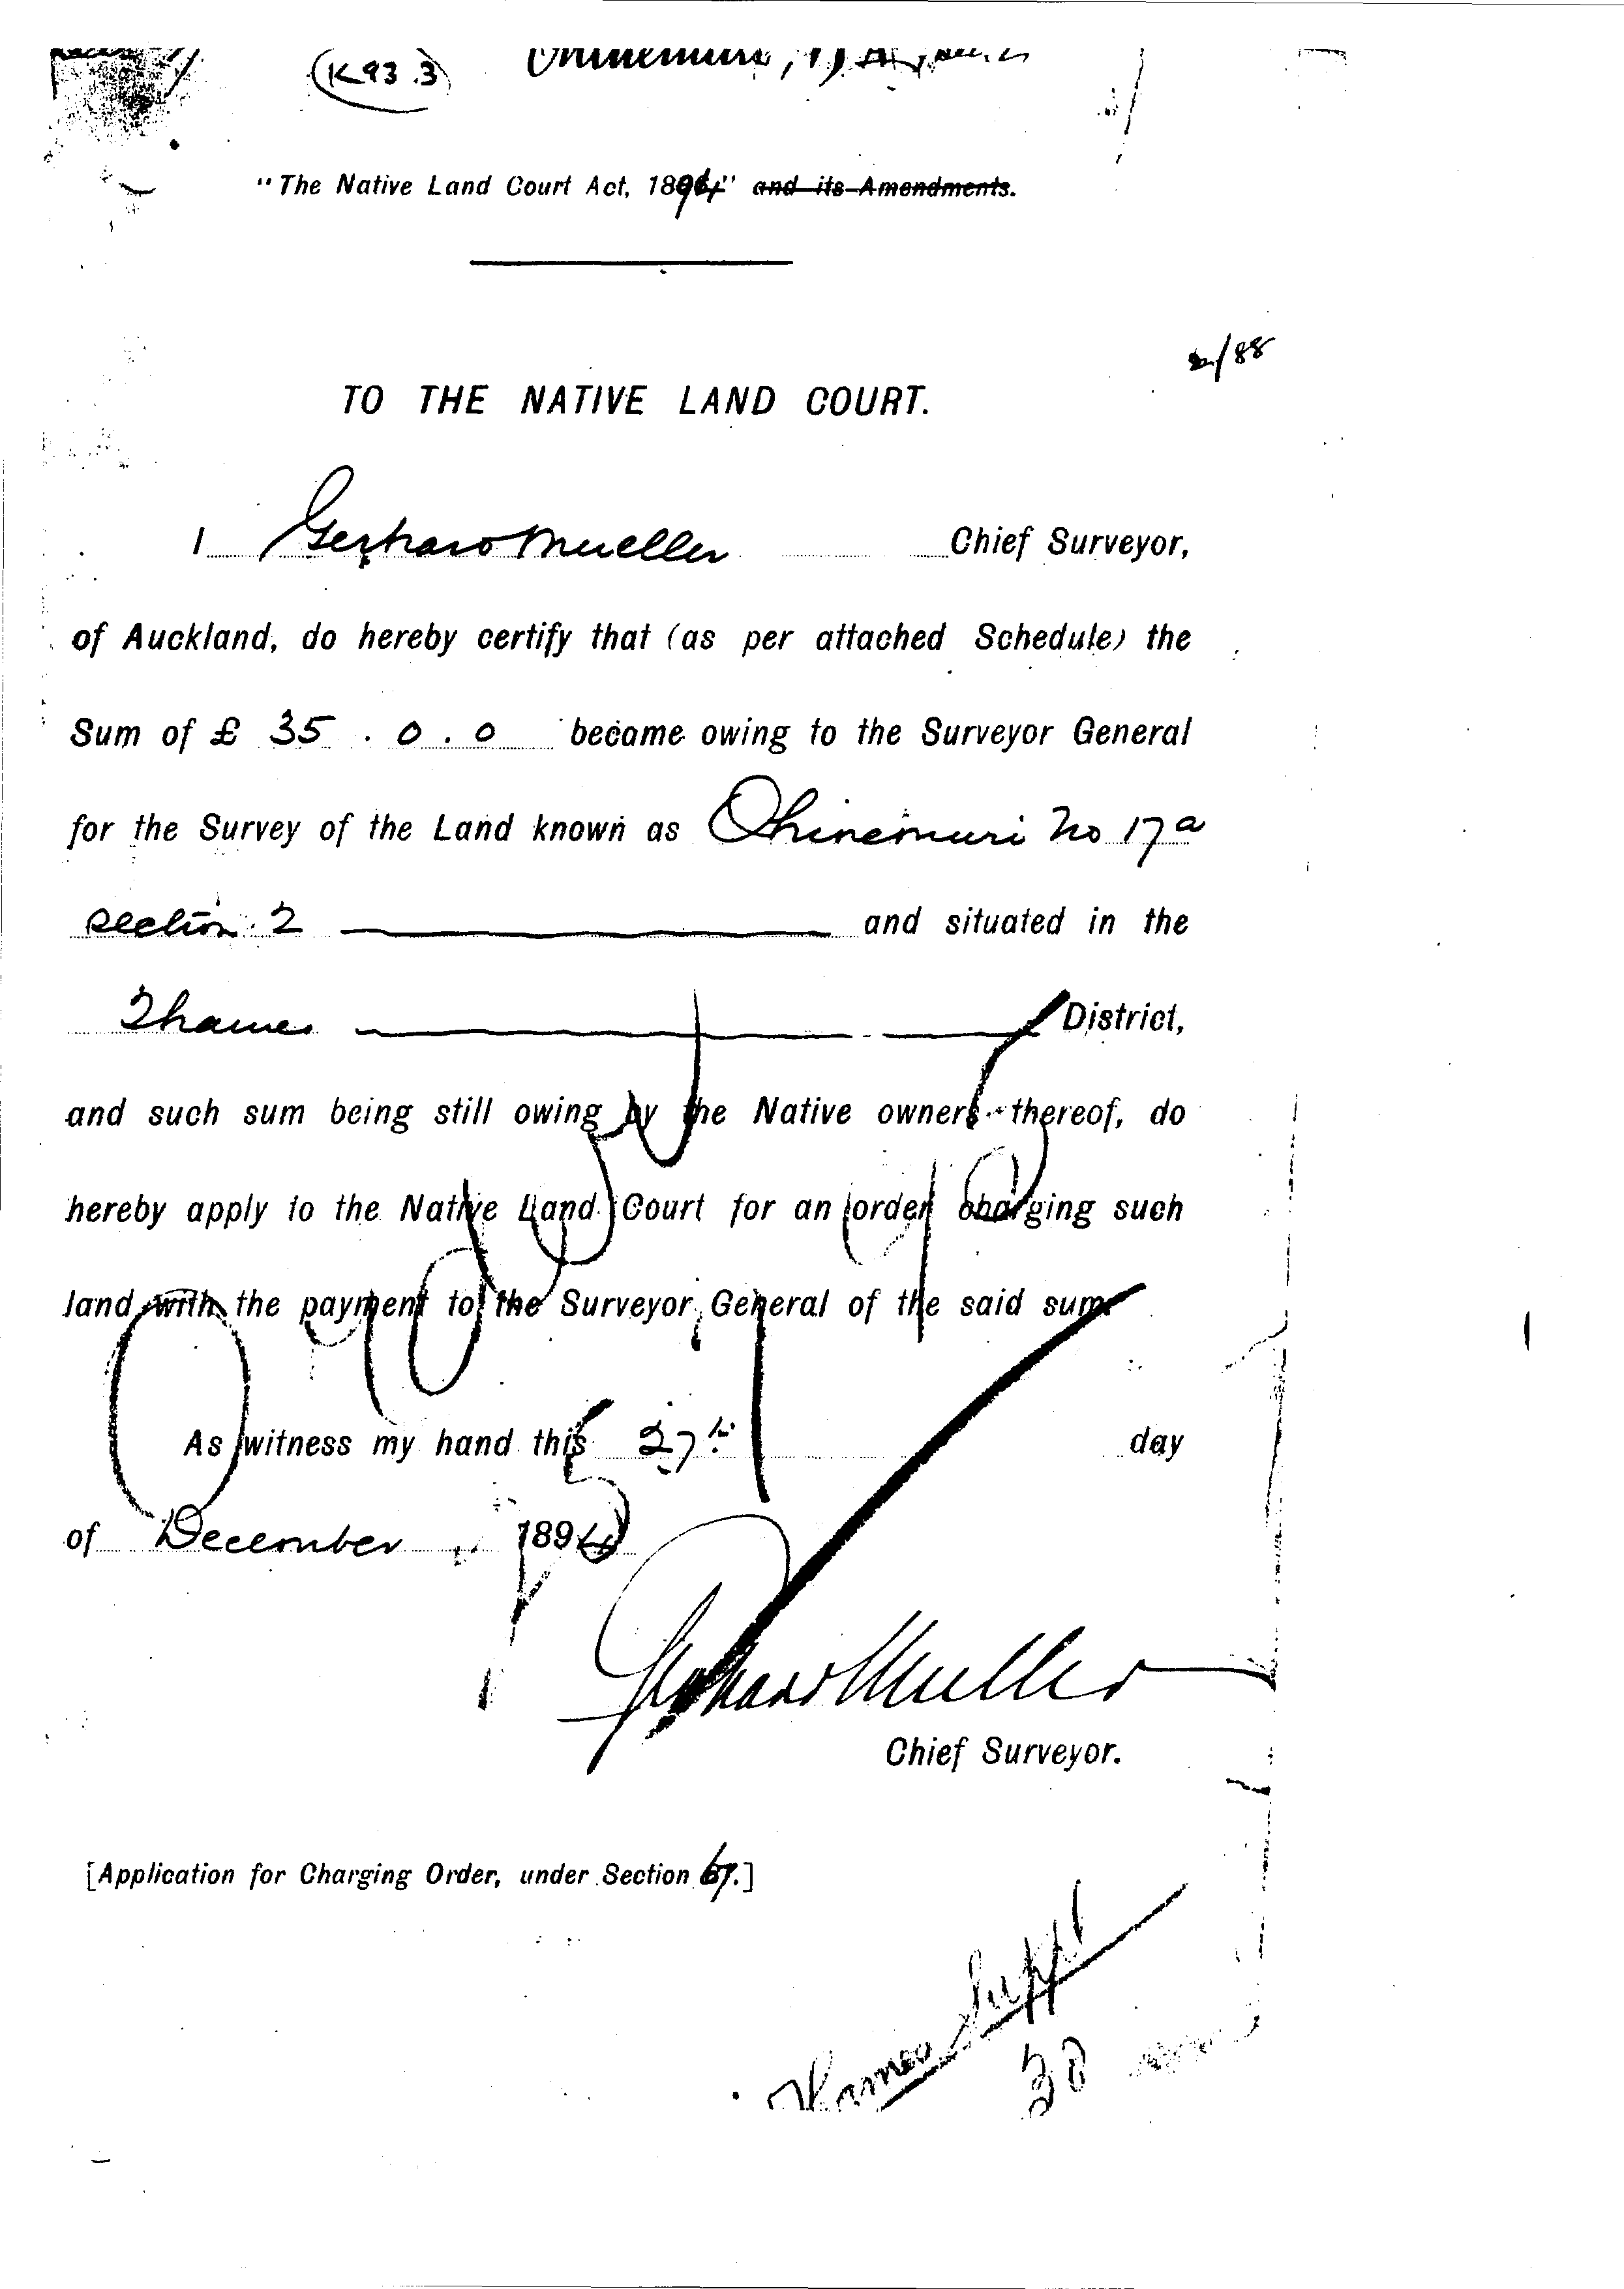 K93.3 Ohinemuri, 17A
"The Native Land Court Act, 1894" and its Amendments.
2/88
TO THE NATIVE LAND COURT.
I Gerhard Mueller Chief Surveyor,
of Auckland, do hereby certify that (as per attached Schedule) the
Sum of £ 35 . 0 . 0 became owing to the Surveyor General
for the Survey of the Land known as Ohinemuri No 17a
section 2 and situated in the
Thames District,
and such sum being still owing by the Native owners thereof, do
hereby apply to the Native Land Court for an order charging such
land with the payment to the Surveyor General of the said sum.
As witness my hand this 27th day
of December 1894
Gerhard Mueller
Chief Surveyor.
[Application for Charging Order, under Section 67.]
Thames Suppl
38